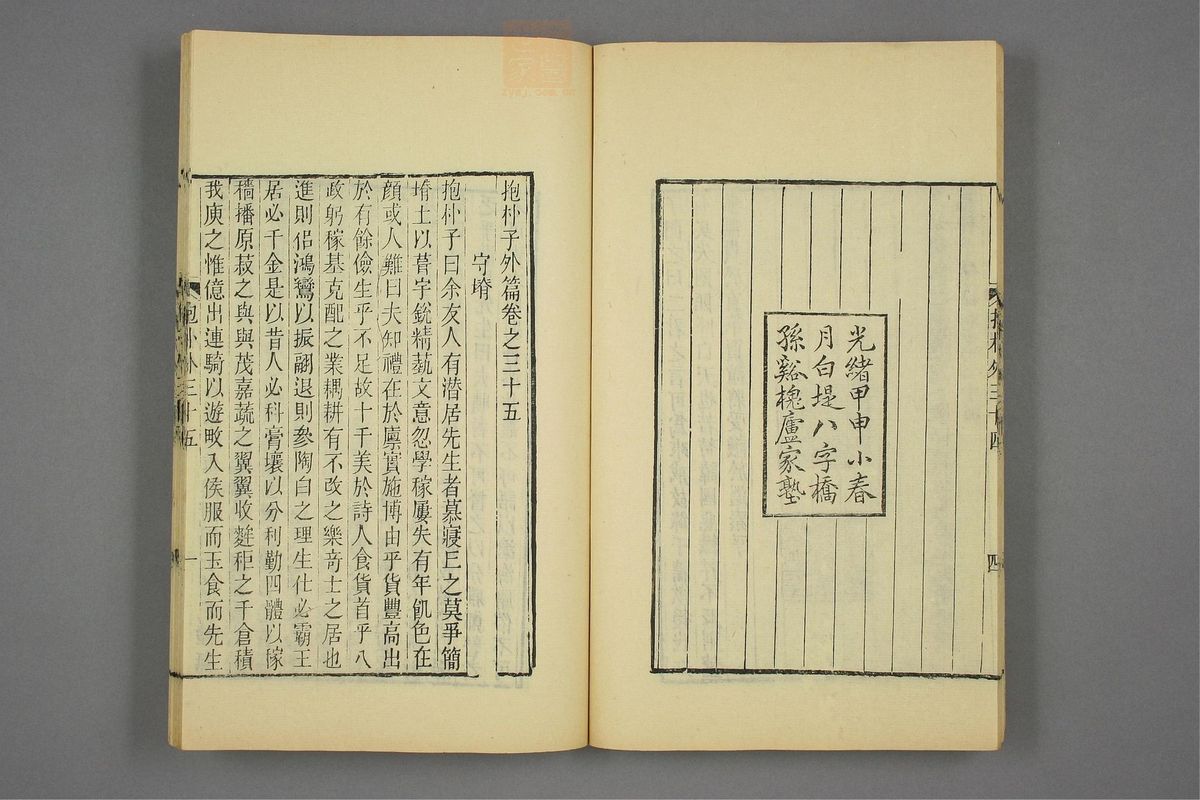 光緒甲申小春
月白堤八字橋
孫谿槐廬家塾
四
抱朴子外篇卷之三十五
守塉
抱朴子曰余友人有潜居先生者慕寢丘之莫爭簡
塉土以葺宇銳精蓺文意忽學稼屢失有年飢色在
顔或人難曰夫知禮在於廩實施博由乎貨豐高出
於有餘儉生乎不足故十千美於詩人食貨首乎八
政躬稼基克配之業耦耕有不改之樂奇士之居也
進則侣鴻鸞以振翮退則參陶白之理生仕必霸王
居必千金是以昔人必科膏壤以分利勤四體以稼
穡播原菽之與與茂嘉蔬之翼翼收𪎊秬之千倉積
我庾之惟億出連騎以遊畋入侯服而玉食而先生
抱朴外三十五
一